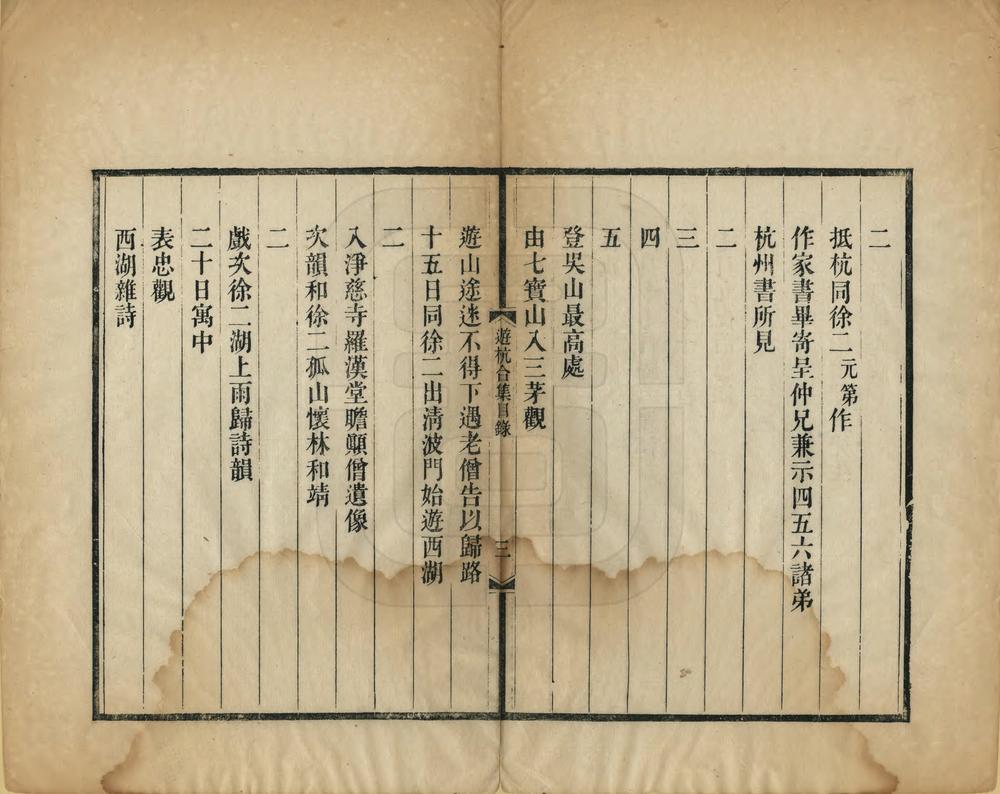 二
抵杭同徐二元第作
作家書畢寄呈仲兄兼示四五六諸弟
杭州書所見
二
三
四
五
登吳山最高處
由七寶山入三茅觀
遊杭合集目錄
三
遊山途迷不得下遇老僧告以歸路
十五日同徐二出淸波門始遊西湖
二
入淨慈寺羅漢堂瞻顚僧遺像
次韻和徐二孤山懷林和靖
二
戲次徐二湖上雨歸詩韻
二十日寓中
表忠觀
西湖雜詩